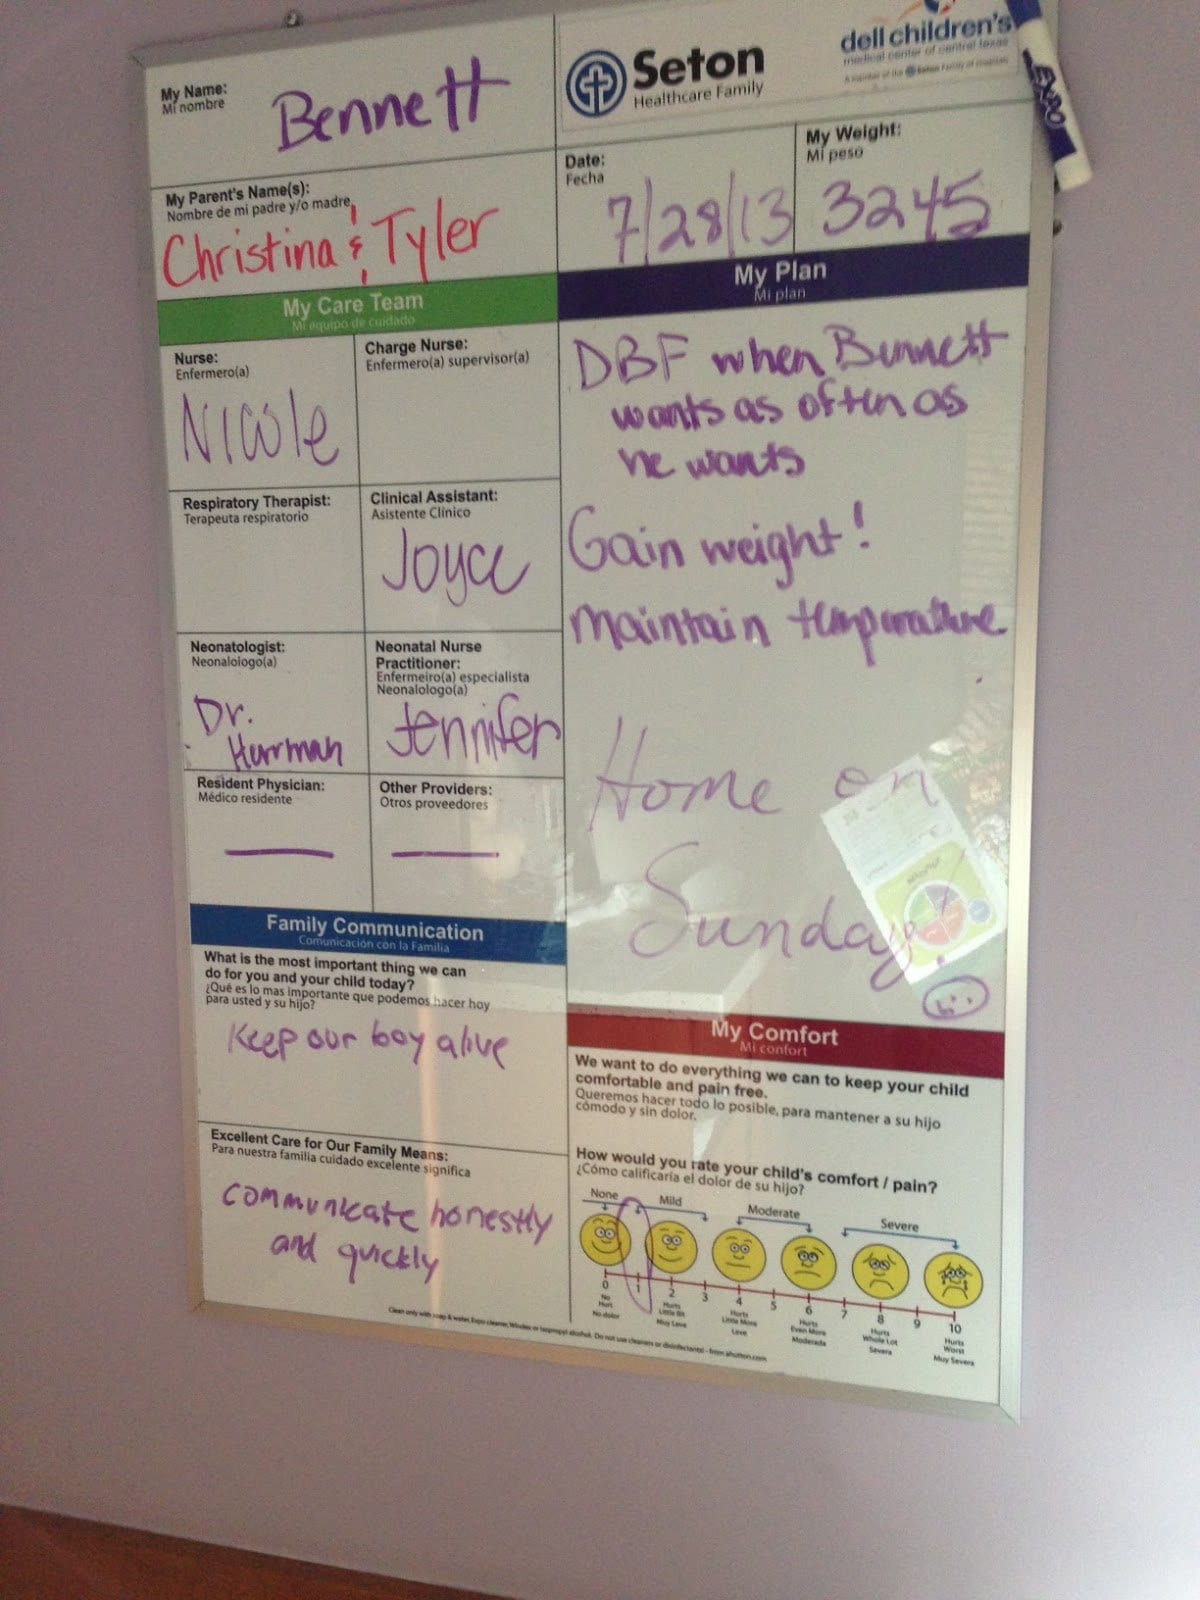 My Name:
Mi nombre
Bennett
Seton
Healthcare Family
dell children's
medical center of central texas
A member of the Seton Family of Hospitals
EXPO
My Parent's Name(s):
Nombre de mi padre y/o madre
Christina & Tyler
Date:
Fecha
7/28/13
My Weight:
Mi peso
3245
My Care Team
Mi equipo de cuidado
Nurse:
Enfermero(a)
Nicole
Charge Nurse:
Enfermero(a) supervisor(a)
Respiratory Therapist:
Terapeuta respiratorio
Clinical Assistant:
Asistente Clínico
Joyce
Neonatologist:
Neonalologo(a)
Dr.
Hurrman
Neonatal Nurse
Practitioner:
Enfermeiro(a) especialista
Neonalologo(a)
Jennifer
Resident Physician:
Médico residente
Other Providers:
Otros proveedores
Family Communication
Comunicación con la Familia
What is the most important thing we can
do for you and your child today?
¿Qué es lo mas importante que podemos hacer hoy
para usted y su hijo?
Keep our boy alive
Excellent Care for Our Family Means:
Para nuestra familia cuidado excelente significa
communicate honestly
and quickly
My Plan
Mi plan
DBF when Bennett
wants as often as
he wants
Gain weight!
maintain temperature
Home on
Sunday!
My Comfort
Mi confort
We want to do everything we can to keep your child
comfortable and pain free.
Queremos hacer todo lo posible, para mantener a su hijo
cómodo y sin dolor.
How would you rate your child's comfort / pain?
¿Cómo calificaría el dolor de su hijo?
None Mild Moderate Severe
0 1 2 3 4 5 6 7 8 9 10
No Hurt No dolor
Hurts Little Bit Muy Leve
Hurts Little More Leve
Hurts Even More Moderada
Hurts Whole Lot Severa
Hurts Worst Muy Severa
Clean only with soap & water, Expo cleaner, Windex or isopropyl alcohol. Do not use cleaners or disinfectants! - from ahutton.com